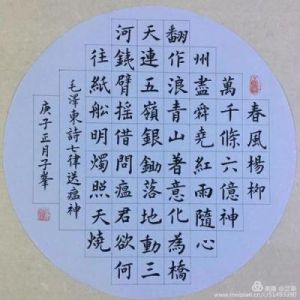 春風楊柳
萬千條六億神
州盡舜堯紅雨隨心
翻作浪青山著意化為橋
天連五嶺銀鋤落地動三
河銕臂搖借問瘟君欲何
往紙船明燭照天燒
毛澤東詩七律送瘟神
庚子正月子峯